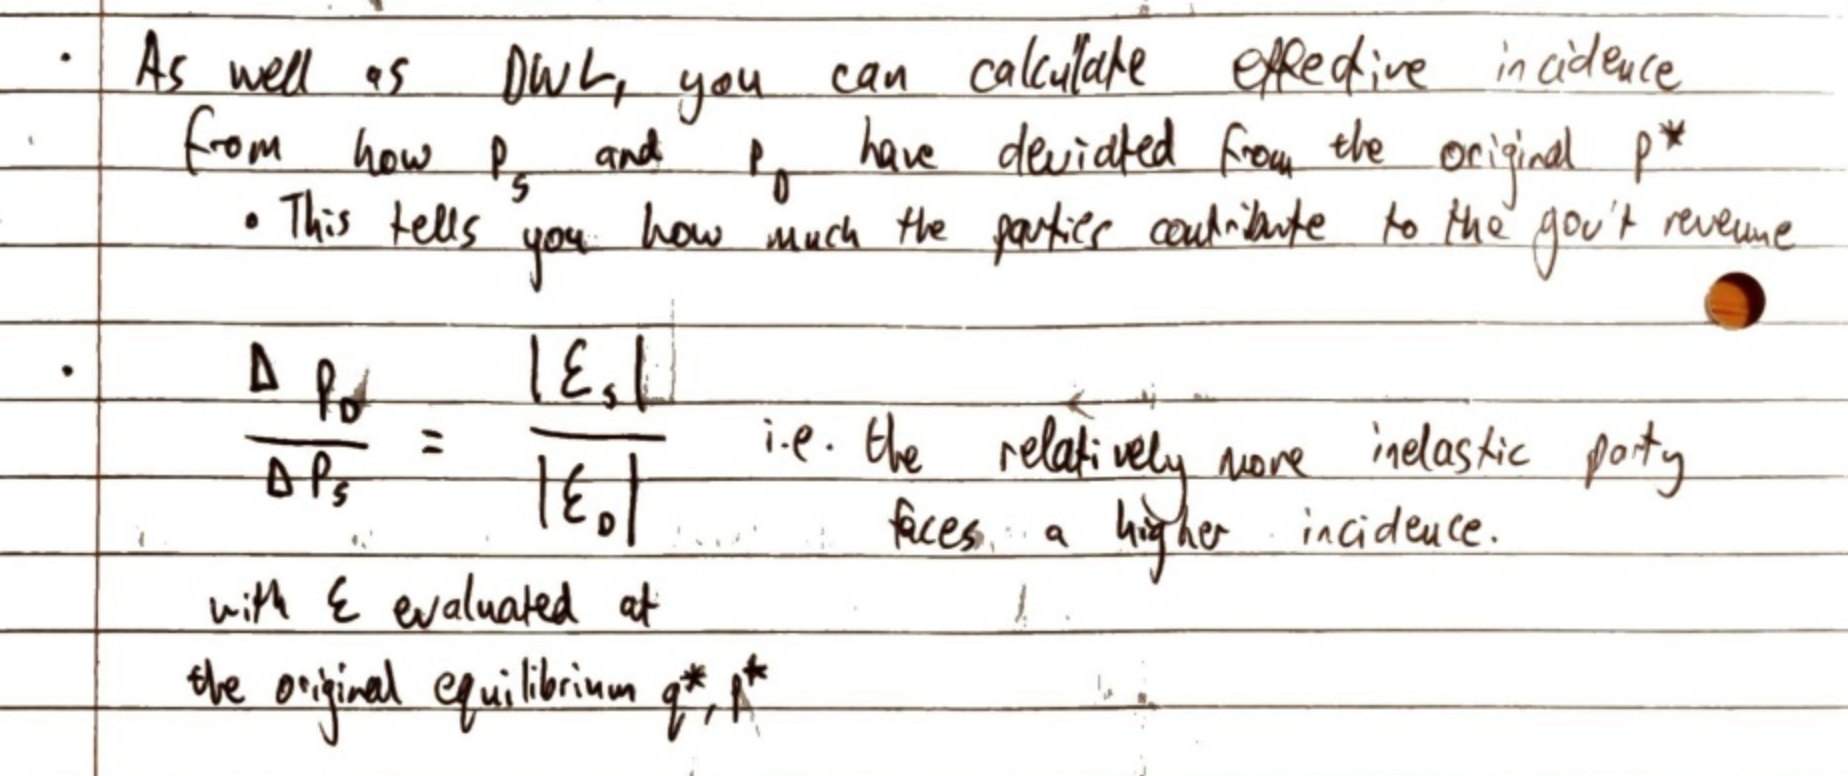 • As well as DWL, you can calculate effective incidence
from how P_S and P_D have deviated from the original P*
• This tells you how much the parties contribute to the gov't revenue
• ΔP_D / ΔP_S = |ε_S| / |ε_D| i.e. the relatively more inelastic party
faces a higher incidence.
with ε evaluated at
the original equilibrium q*, p*